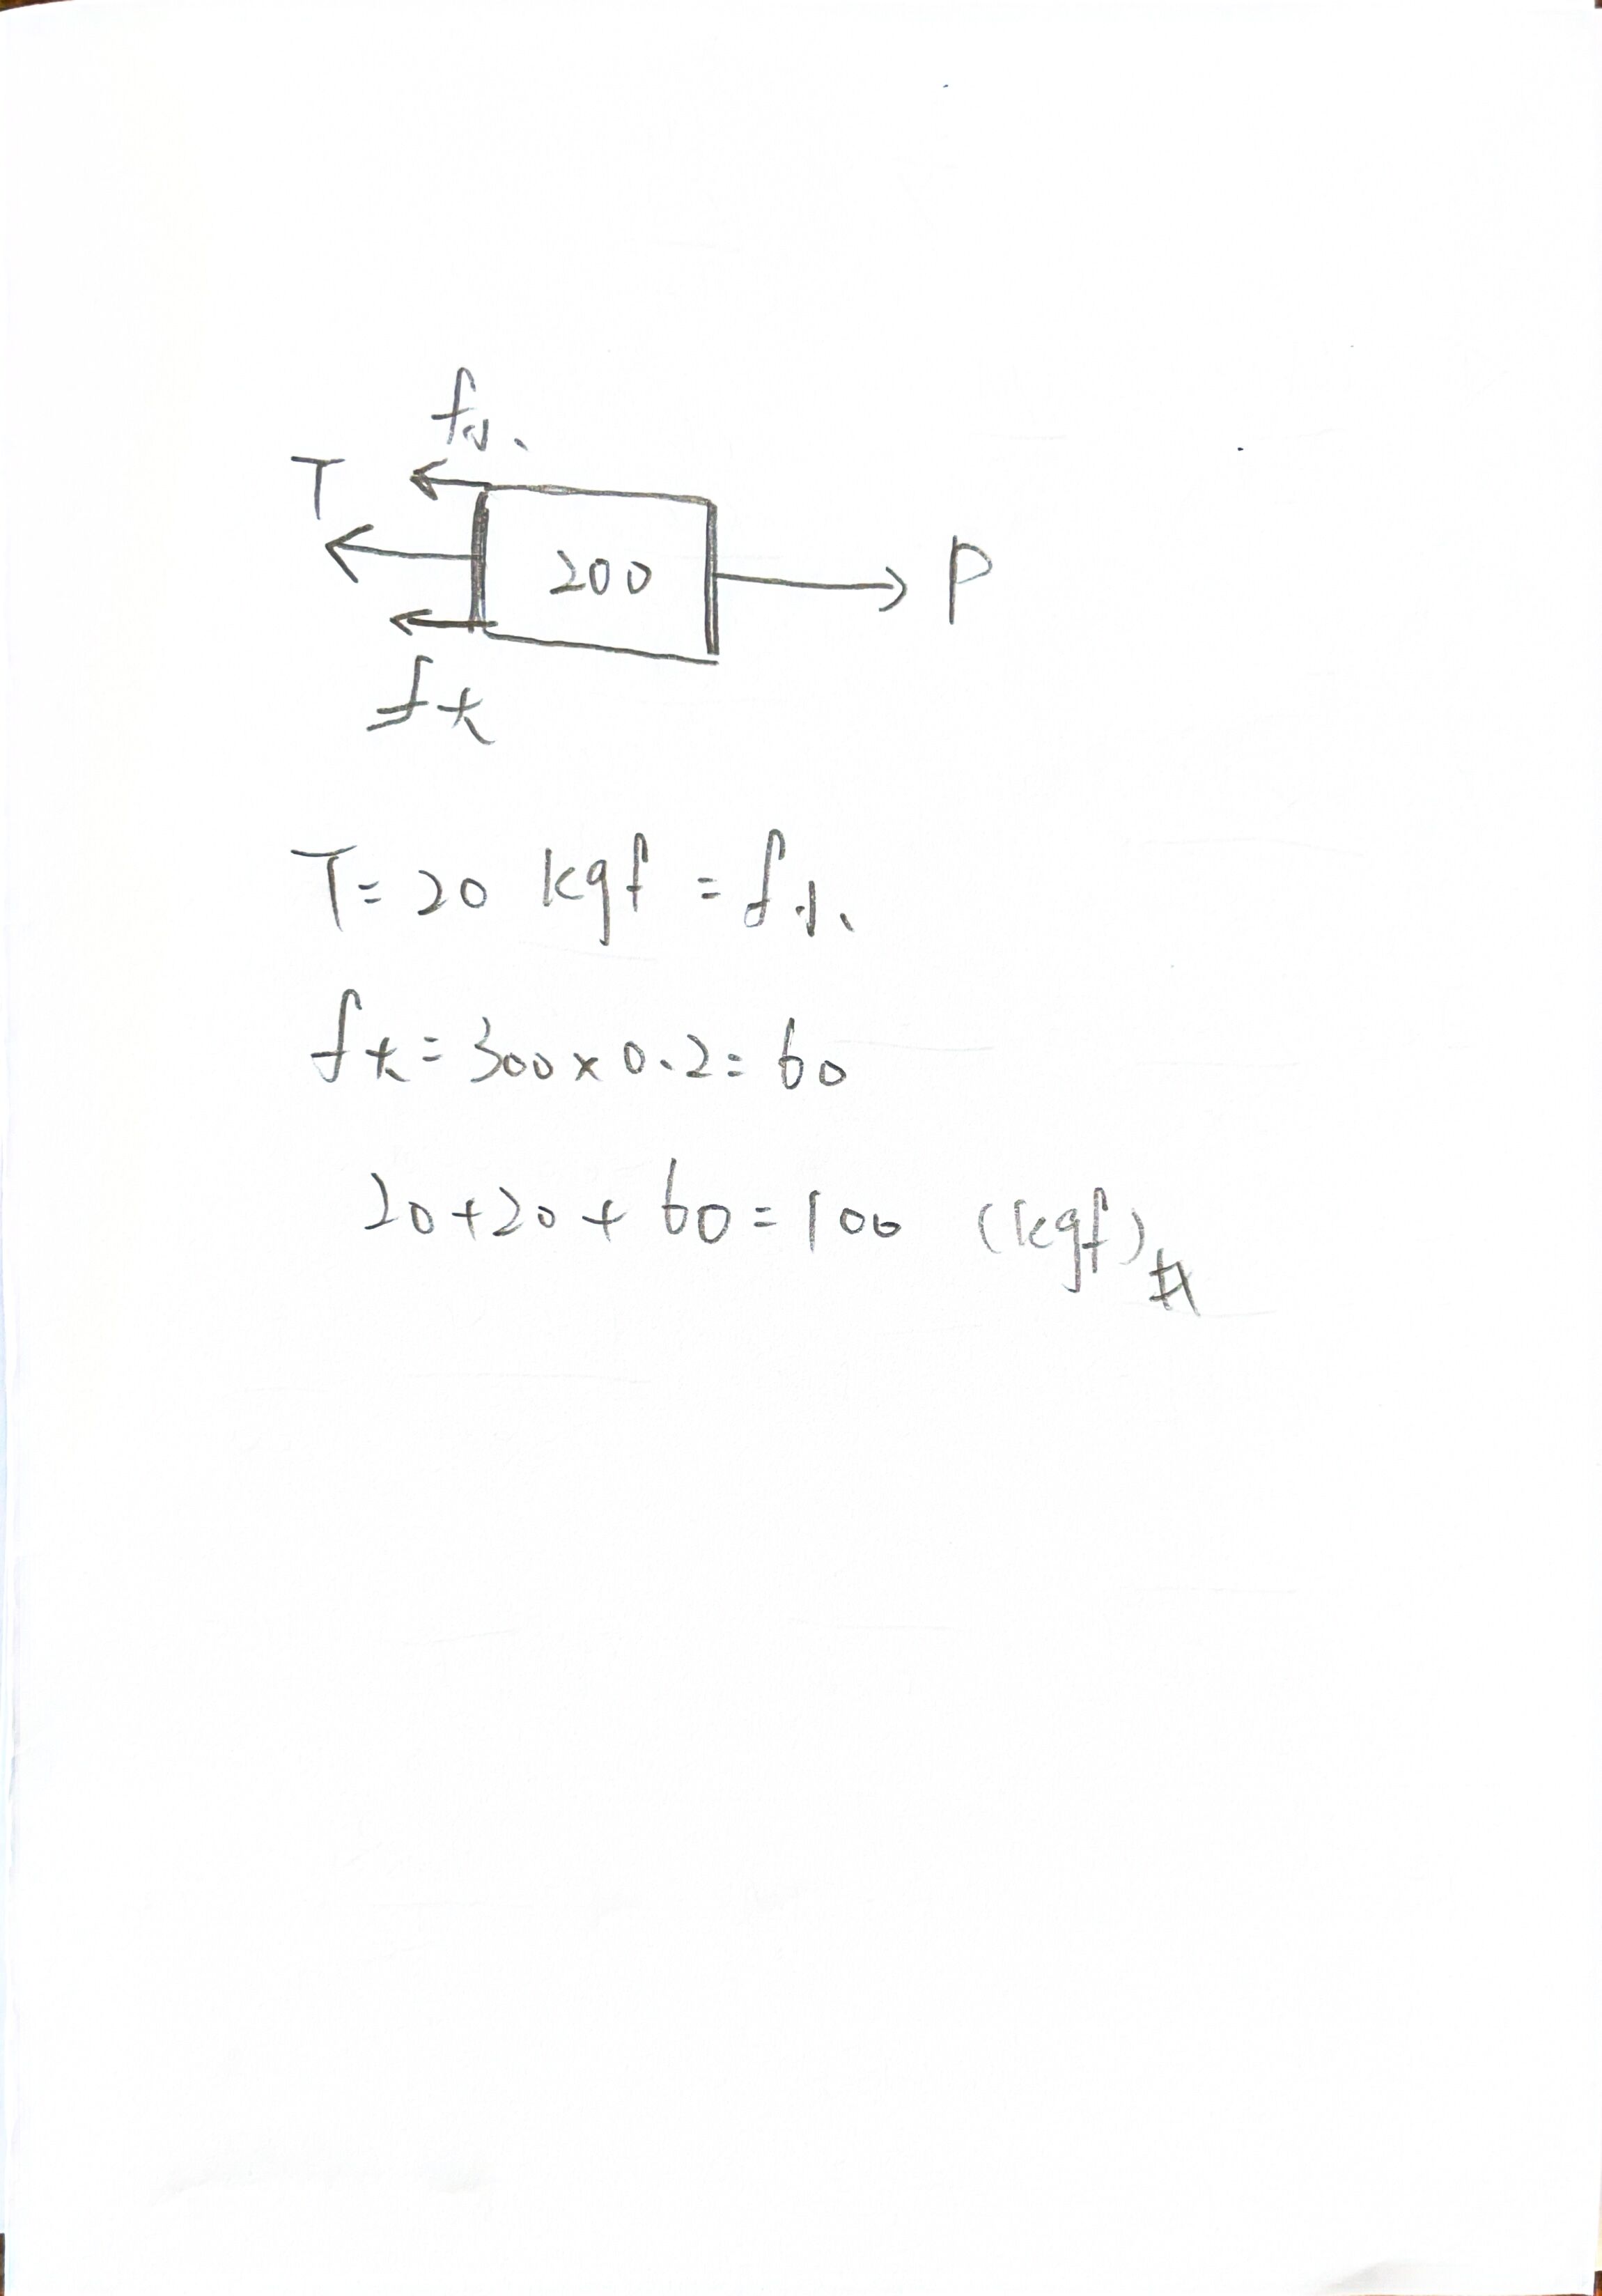 f小
T
200
P
f大
T = 20 kgf = f小
f大 = 300 × 0.2 = 60
20 + 20 + 60 = 100 (kgf)#